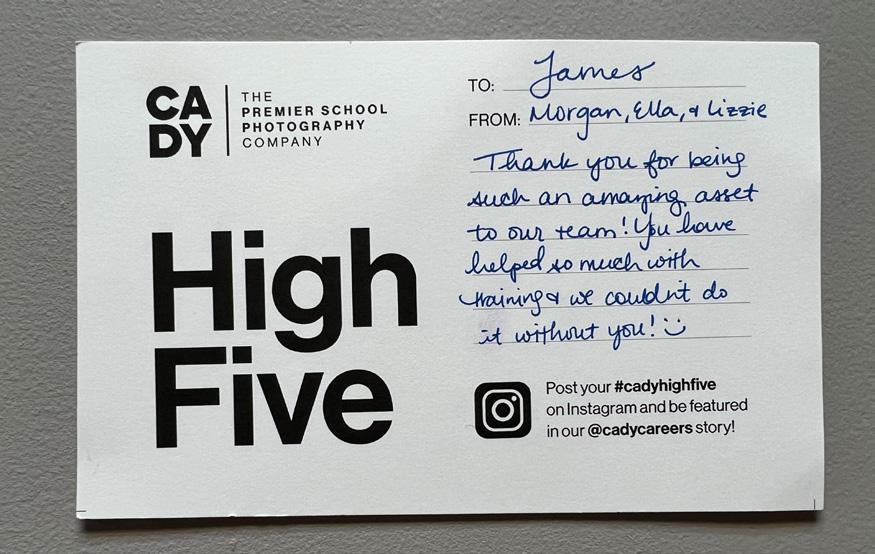 CA
DY
THE
PREMIER SCHOOL
PHOTOGRAPHY
COMPANY
High
Five
TO: James
FROM: Morgan, Ella, & Lizzie
Thank you for being
such an amazing asset
to our team! You have
helped so much with
training & we couldn't do
it without you! :)
Post your #cadyhighfive
on Instagram and be featured
in our @cadycareers story!